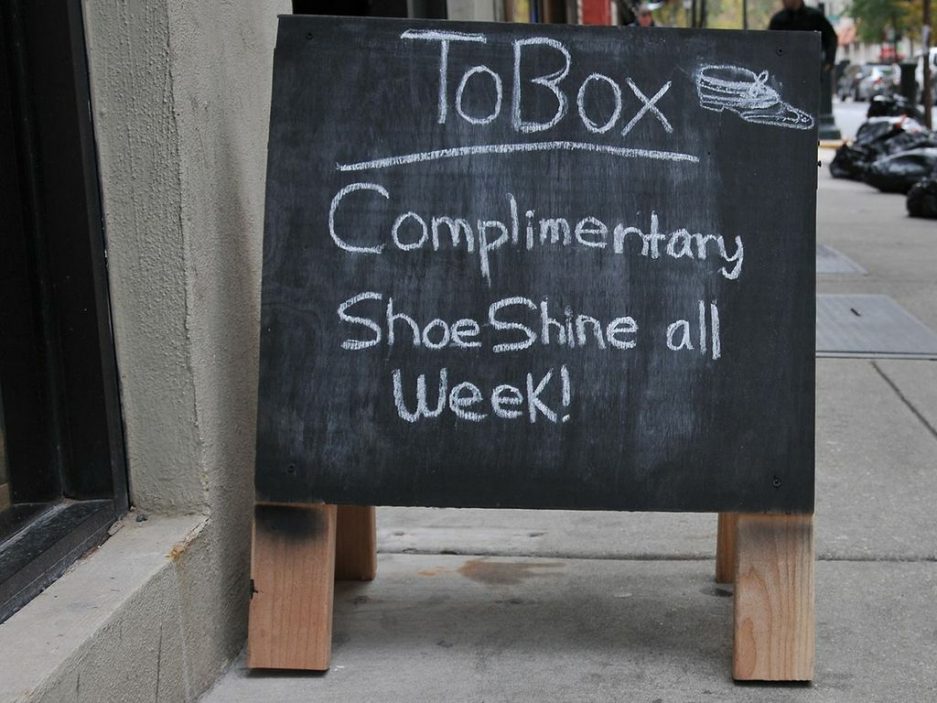 ToBox
Complimentary
ShoeShine all
Week!